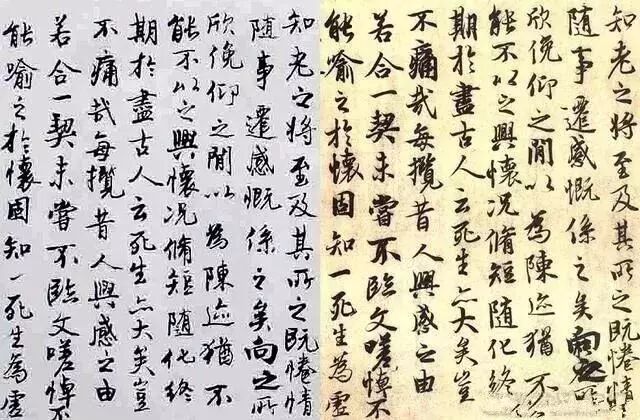 知老之將至及其所之既惓情
隨事遷感慨係之矣向之所
欣俛仰之間以為陳迹猶不
能不以之興懷況脩短隨化終
期於盡古人云死生亦大矣豈
不痛哉每攬昔人興感之由
若合一契未嘗不臨文嗟悼不
能喻之於懷固知一死生為虛
知老之將至及其所之既惓情
隨事遷感慨係之矣向之所
欣俛仰之間以為陳迹猶不
能不以之興懷況脩短隨化終
期於盡古人云死生亦大矣豈
不痛哉每攬昔人興感之由
若合一契未嘗不臨文嗟悼不
能喻之於懷固知一死生為虛